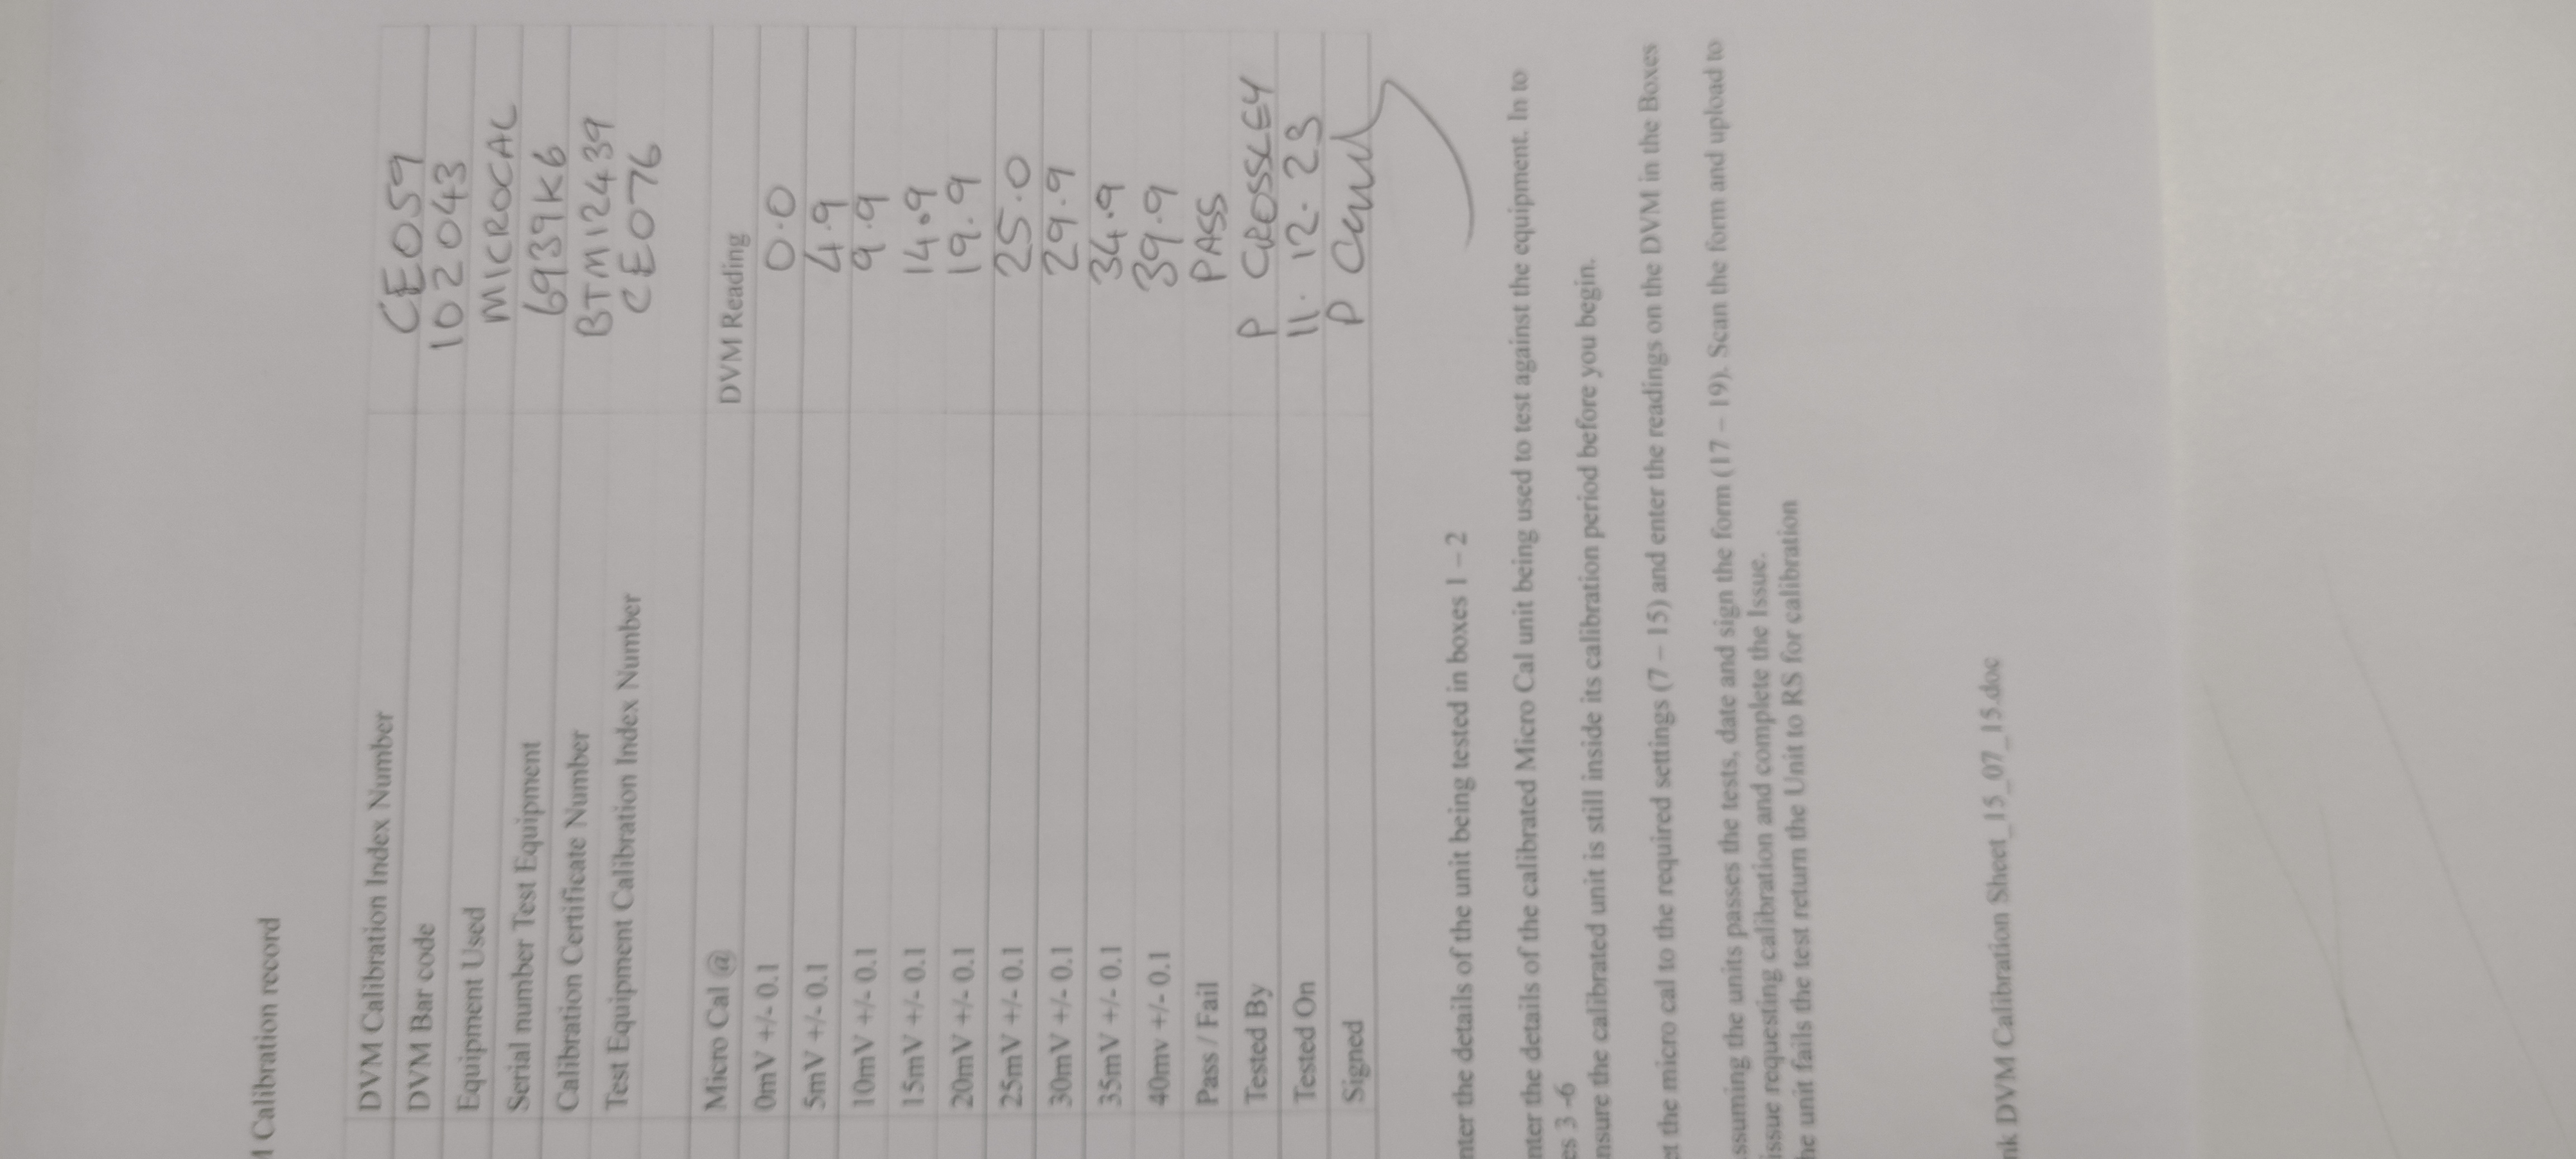 Calibration record
DVM Calibration Index Number CE059
DVM Bar code 102043
Equipment Used MICROCAL
Serial number Test Equipment 6939K6
Calibration Certificate Number BTM12439
Test Equipment Calibration Index Number CE076
Micro Cal @ DVM Reading
0mV +/- 0.1 0.0
5mV +/- 0.1 4.9
10mV +/- 0.1 9.9
15mV +/- 0.1 14.9
20mV +/- 0.1 19.9
25mV +/- 0.1 25.0
30mV +/- 0.1 29.9
35mV +/- 0.1 34.9
40mv +/- 0.1 39.9
Pass / Fail PASS
Tested By P CROSSLEY
Tested On 11.12.23
Signed P
nter the details of the unit being tested in boxes 1 – 2
nter the details of the calibrated Micro Cal unit being used to test against the equipment. In to
es 3 -6
nsure the calibrated unit is still inside its calibration period before you begin.
et the micro cal to the required settings (7 – 15) and enter the readings on the DVM in the Boxes
ssuming the units passes the tests, date and sign the form (17 – 19). Scan the form and upload to
issue requesting calibration and complete the Issue.
he unit fails the test return the Unit to RS for calibration
nk DVM Calibration Sheet_15_07_15.doc